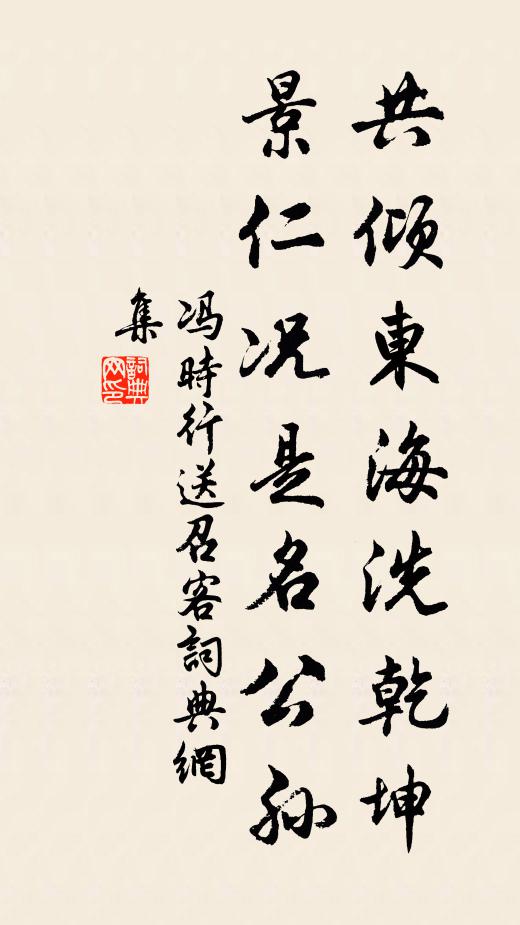 共傾東海洗乾坤
景仁况是名公孙
冯時行送召客詞典網
集
詞典網印